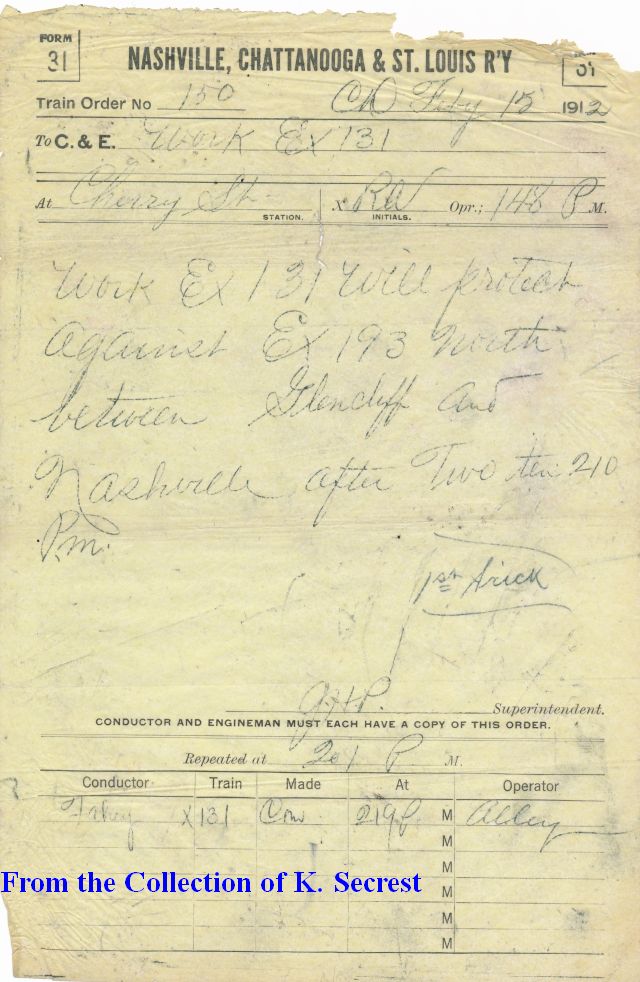 FORM
31
NASHVILLE, CHATTANOOGA & ST. LOUIS R'Y
31
Train Order No 150 Feby 15 1912
To C. & E. Work Ex 131
At Cherry St. STATION. X INITIALS. Opr.; 148 P M.
Work Ex 131 will protect
against Ex 193 North
between Glencliff and
Nashville after Two ten 210
P.m.
Superintendent.
CONDUCTOR AND ENGINEMAN MUST EACH HAVE A COPY OF THIS ORDER.
Repeated at 201 P M.
Conductor Train Made At Operator
X131 Com 219 P M
M
M
From the Collection of K. Secrest
M
M
M